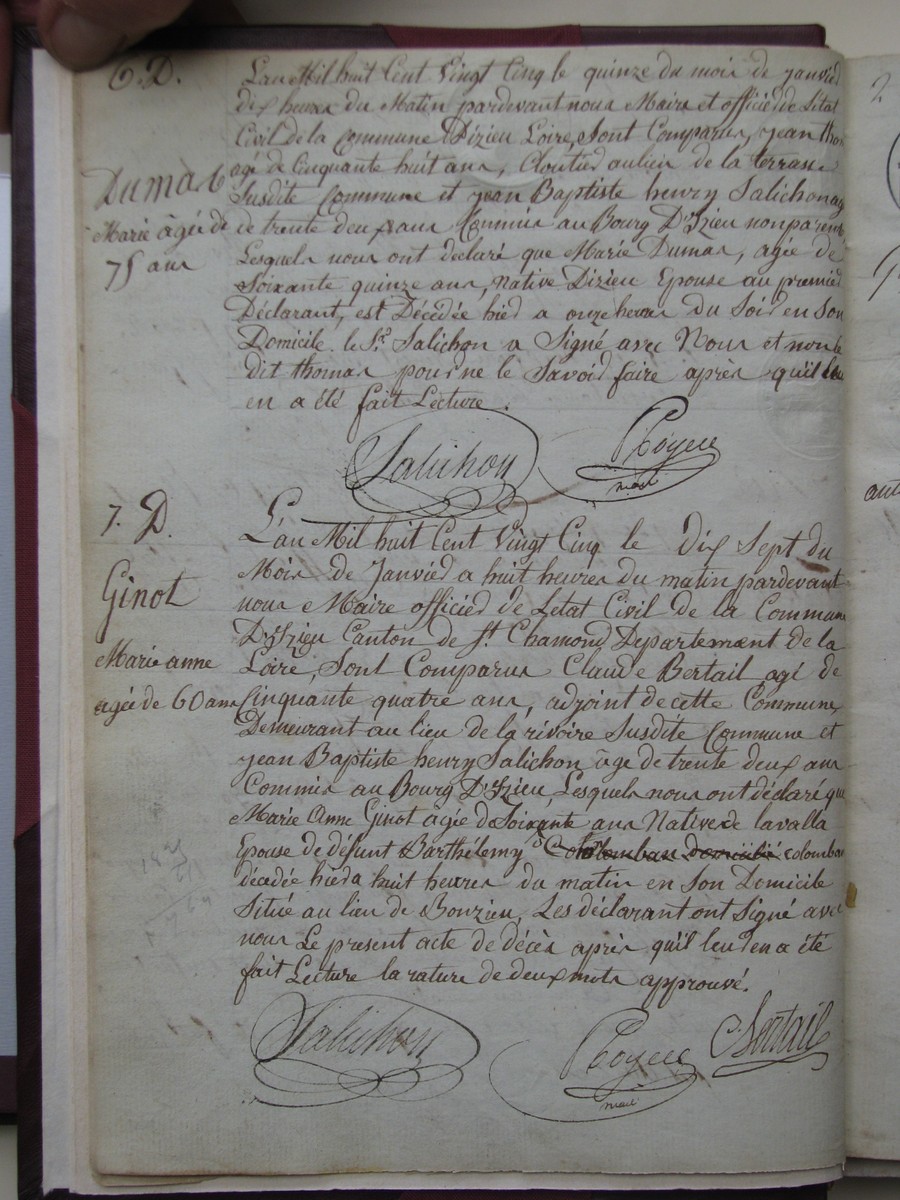 6. D.
Dumas
Marie âgée de
75 ans
L'an Mil huit Cent Vingt Cinq le quinze du mois de janvier
dix heures du Matin pardevant nous Maire et officier de L'état
Civil de la Commune D'izieu Loire, Sont Comparus, jean tho
agé de Cinquante huit ans, Cloutier au lieu de la terrasse
Susdite Commune et jean Baptiste henry Salichon ag
de trente deux ans Commis au Bourg D'Izieu non parents
Lesquels nous ont déclaré que Marie Dumas, agée de
Soixante quinze ans, Native D'izieu Epouse au premier
Déclarant, est Décédée hier a onze heures du Soir en Son
Domicile. le Sr. Salichon a Signé avec Nous et non le
dit thomas pour ne le Savoir faire après qu'il leur
en a été fait Lecture.
Salichon
Royere
mair
7. D.
Ginot
Marie anne
agée de 60 ans
L'an Mil huit Cent Vingt Cinq le dix Sept du
Mois de Janvier a huit heures du matin pardevant
nous Maire officier de L'etat Civil de la Commune
D'Izieu Canton de St. Chamond Departement de la
Loire, Sont Comparus Claude Bertail agé de
Cinquante quatre ans, adjoint de cette Commune
Demeurant au lieu de la rivoire Susdite Commune et
jean Baptiste henry Salichon âgé de trente deux ans
Commis au Bourg D'Izieu, Lesquels nous ont déclaré que
Marie Anne Ginot âgée de Soixante ans Native de lavalla
Epouse de défunt Barthélemy Colomban domicilié colomban
décédée hier a huit heures du matin en Son Domicile
Situé au lieu de Bonzieu, Les déclarant ont Signé avec
nous Le present acte de décès après qu'il leur en a été
fait Lecture la rature de deux mots approuvé.
Salichon
Royere
mair
C Bertail
2